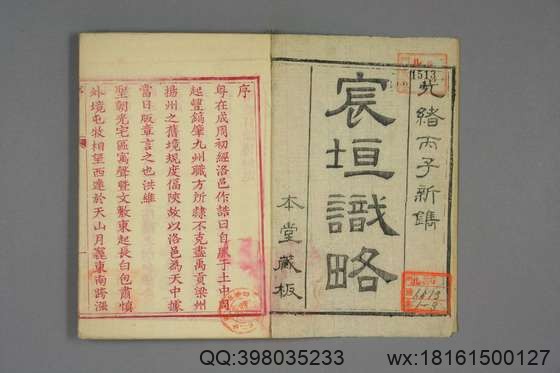 光緒丙子新鐫
宸垣識略
本堂藏板
序
粵在成周初經洛邑作誥曰自服于土中周
起豐鎬肇九州職方所隸不克盡禹貢梁州
揚州之舊境規度偪陿故以洛邑為天中據
當日版章言之也洪維
聖朝光宅區寓聲暨文敷東起長白包肅慎
外境屯牧相望西逹於天山月竁東南際漲
1513
QQ:398035233
wx:18161500127